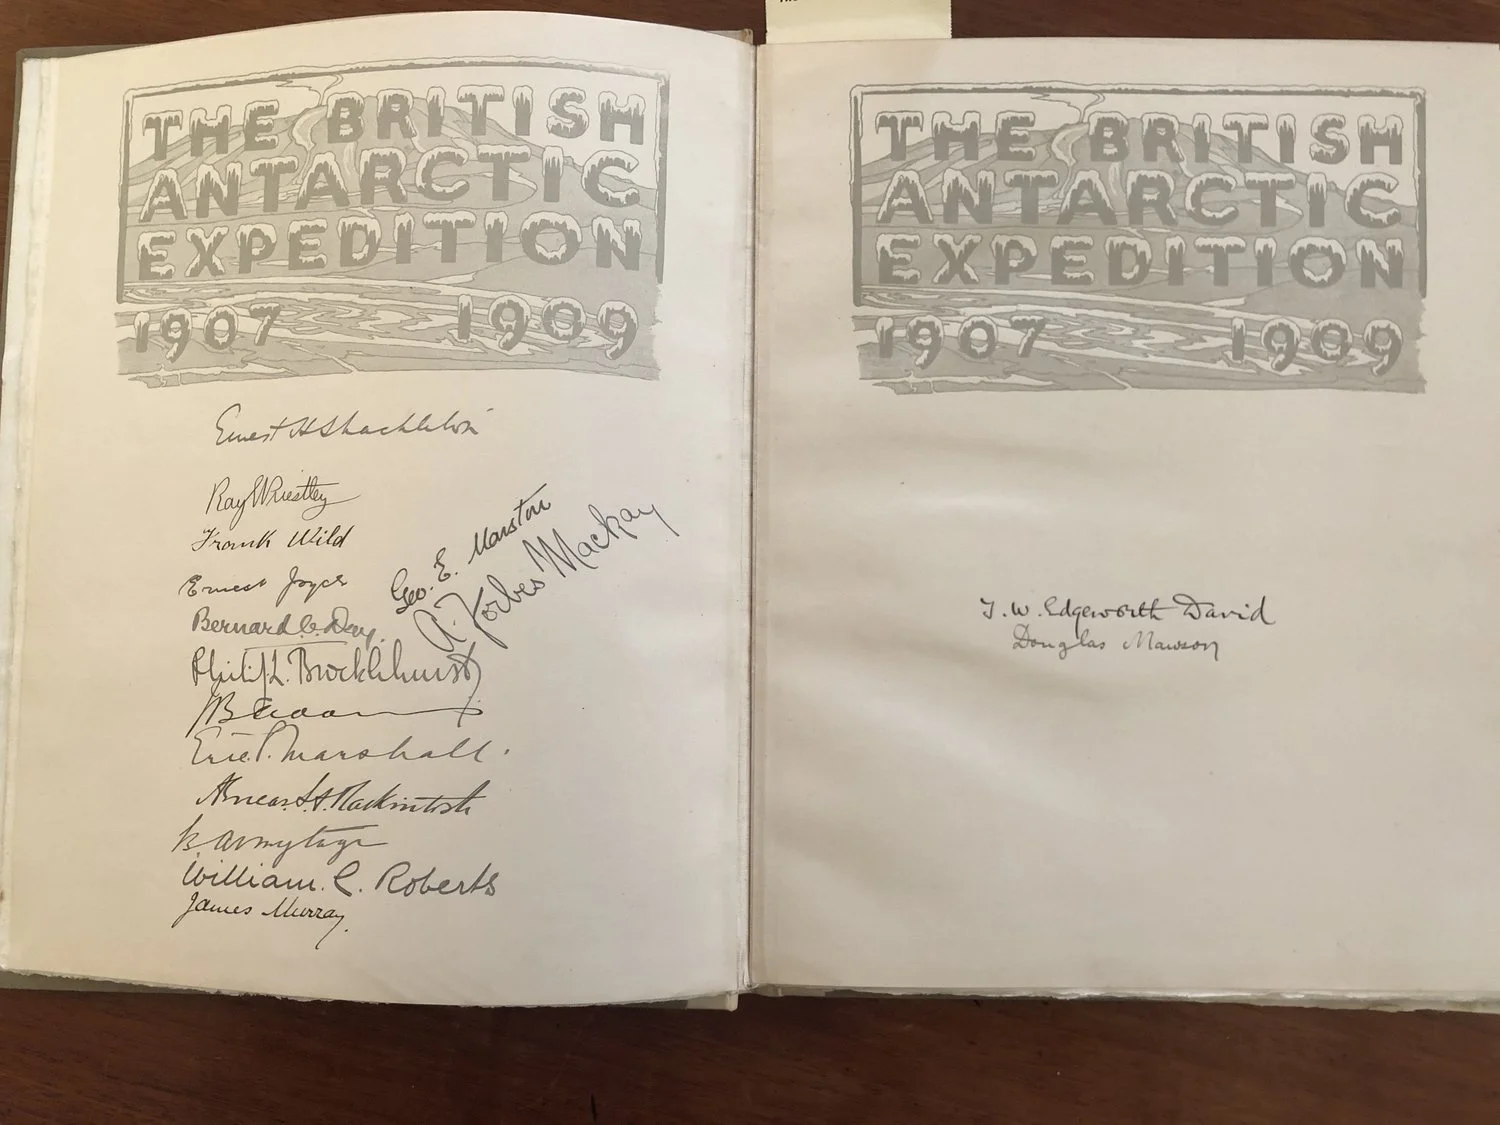 THE BRITISH
ANTARCTIC
EXPEDITION
1907 1909
Ernest H Shackleton
Raymond Priestley
Frank Wild
Geo. E. Marston
A. Forbes Mackay
Ernest Joyce
Bernard C. Day.
Philip L. Brocklehurst
Eric P. Marshall.
Aeneas L. A. Mackintosh
B. Armytage
William. C. Roberts
James Murray.
THE BRITISH
ANTARCTIC
EXPEDITION
1907 1909
T. W. Edgeworth David
Douglas Mawson